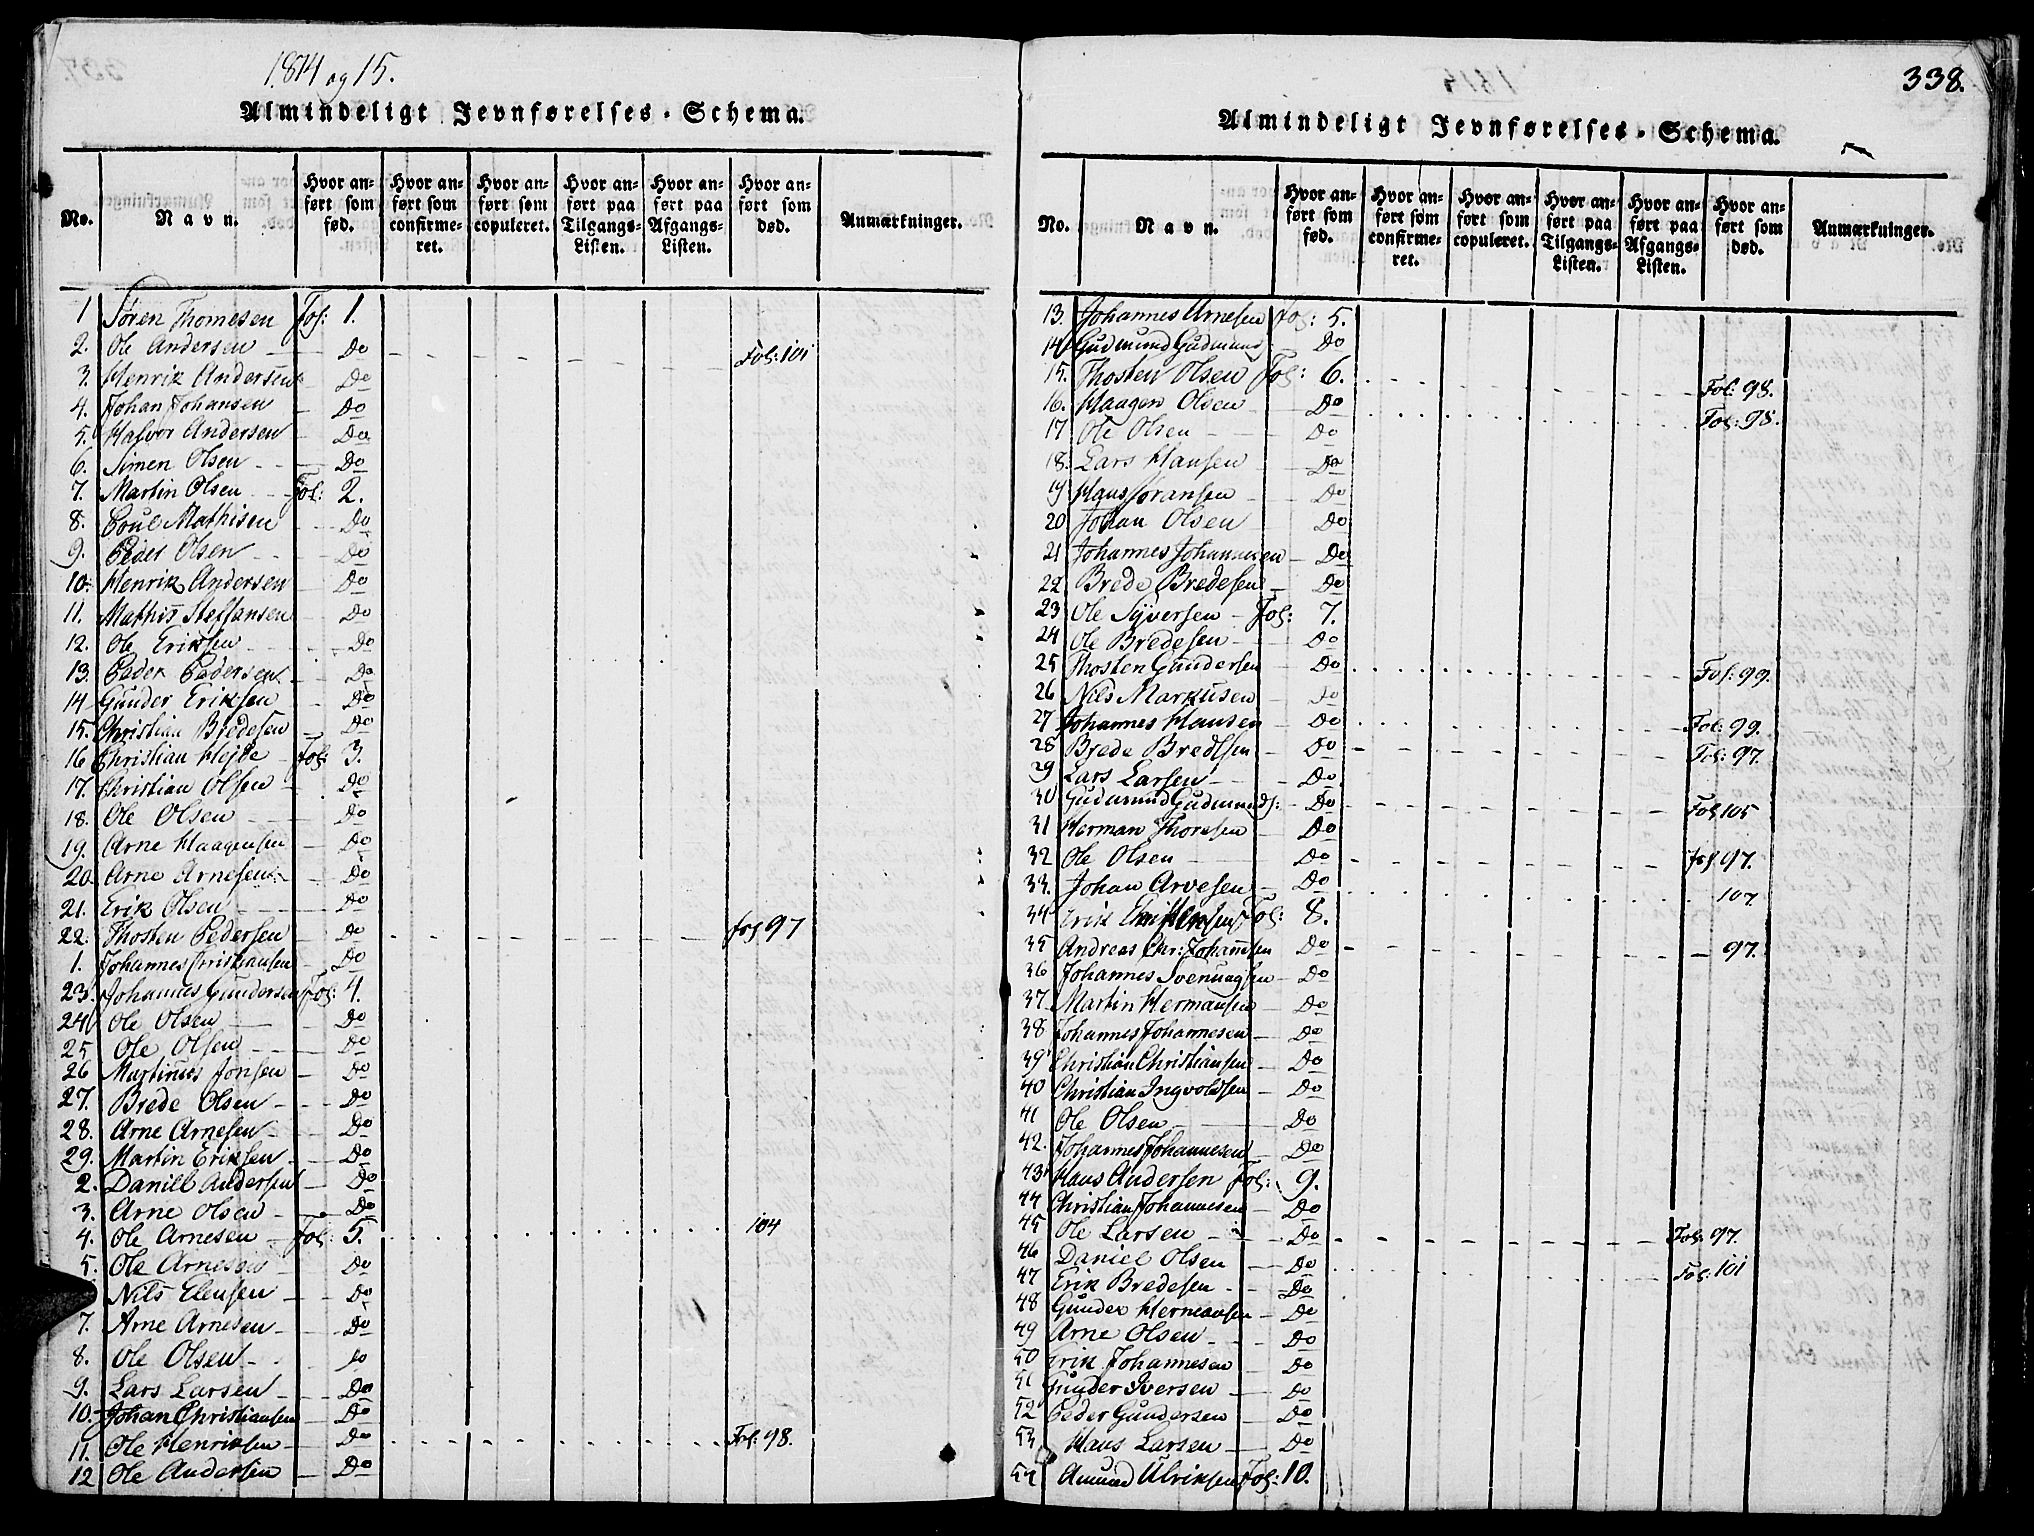 1814 og 15.
Almindeligt Jevnførelses-Schema.
No. Navn. Hvor anført som fød. Hvor anført som confirmeret. Hvor anført som copuleret. Hvor anført paa Tilgangs-Listen. Hvor anført paa Afgangs-Listen. Hvor anført som død. Anmærkninger.
1 Søren Thomesen Fol: 1.
2. Ole Andersen Do Fol: 101
3. Henrik Andersen Do
4. Johan Johansen Do
5. Halvor Andersen Do
6. Simen Olsen Do
7. Martin Olsen Fol: 2.
8. Poul Mathisen Do
9. Peder Olsen Do
10. Henrik Andersen Do
11. Mathis Steffansen Do
12. Ole Eriksen Do
13. Peder Pedersen Do
14 Gunder Eriksen Do
15. Christian Bredesen Do
16 Christian Hejde Fol: 3.
17. Christian Olsen Do
18. Ole Olsen Do
19. Arne Haagensen Do
20. Arne Arnesen Do
21. Erik Olsen Do
22. Thosten Pedersen Do fol 97
1. Johannes Christiansen Do
23. Johannes Gundersen Fol: 4.
24 Ole Olsen Do
25 Ole Olsen Do
26 Martinus Jonsen Do
27. Brede Olsen Do
28. Arne Arnesen Do
29. Martin Eriksen Do
2. Daniel Andersen Do
3. Arne Olsen Do
4. Ole Arnesen Fol: 5. 104
5. Ole Arnesen Do
Nils Elensen Do
7. Arne Arnesen Do
8. Ole Olsen Do
9. Lars Larsen Do
10. Johan Christiansen Do
11. Ole Henriksen Do Fol: 98.
12 Ole Andersen Do
338.
Almindeligt Jevnførelses-Schema.
No. Navn. Hvor anført som fød. Hvor anført som confirmeret. Hvor anført som copuleret. Hvor anført paa Tilgangs-Listen. Hvor anført paa Afgangs-Listen. Hvor anført som død. Anmærkninger.
13. Johannes Arnesen Fol: 5.
14 Gudmund Gudmund Do
15. Thosten Olsen Fol: 6. Fol: 98.
16. Haagen Olsen Do Fol: 98.
17 Ole Olsen Do
18. Lars Hansen Do
19 Hans Joransen Do
20 Johan Olsen Do
21 Johannes Johannesen Do
22 Brede Bredesen Do
23 Ole Syversen Fol: 7.
24 Ole Bredesen Do
25 Thosten Gundersen Do Fol: 99.
26 Nils Markusen Do
27 Johannes Hansen Do Fol: 99.
28 Brede Bredesen Do Fol: 97.
29 Lars Larsen Do
30 Gudmund Gudmunds: Do Fol 105
31 Herman Thoresen Do
32 Ole Olsen Do fol 97.
33. Johan Arvesen Do 107
34 Erik Fol: 8.
35 Andreas Chr: Johannsen Do 97.
36 Johannes Svenungsen Do
37. Martin Hermansen Do
38 Johannes Johannesen Do
39 Christian Christiansen Do
40 Christian Ingvoldsen Do
41 Ole Olsen Do
42. Johannes Johannesen Do
43 Hans Andersen Fol: 9.
44 Christian Johannesen Do
45 Ole Larsen Do Fol: 97.
46 Daniel Olsen Do Fol: 101
47 Erik Bredesen Do
48 Gunder Hermansen Do
49 Arne Olsen Do
50 Erik Johannesen Do
51 Gunder Iversen Do
52 Peder Gundersen Do
53 Hans Larsen Do
54 Amund Ulriksen Fol: 10.